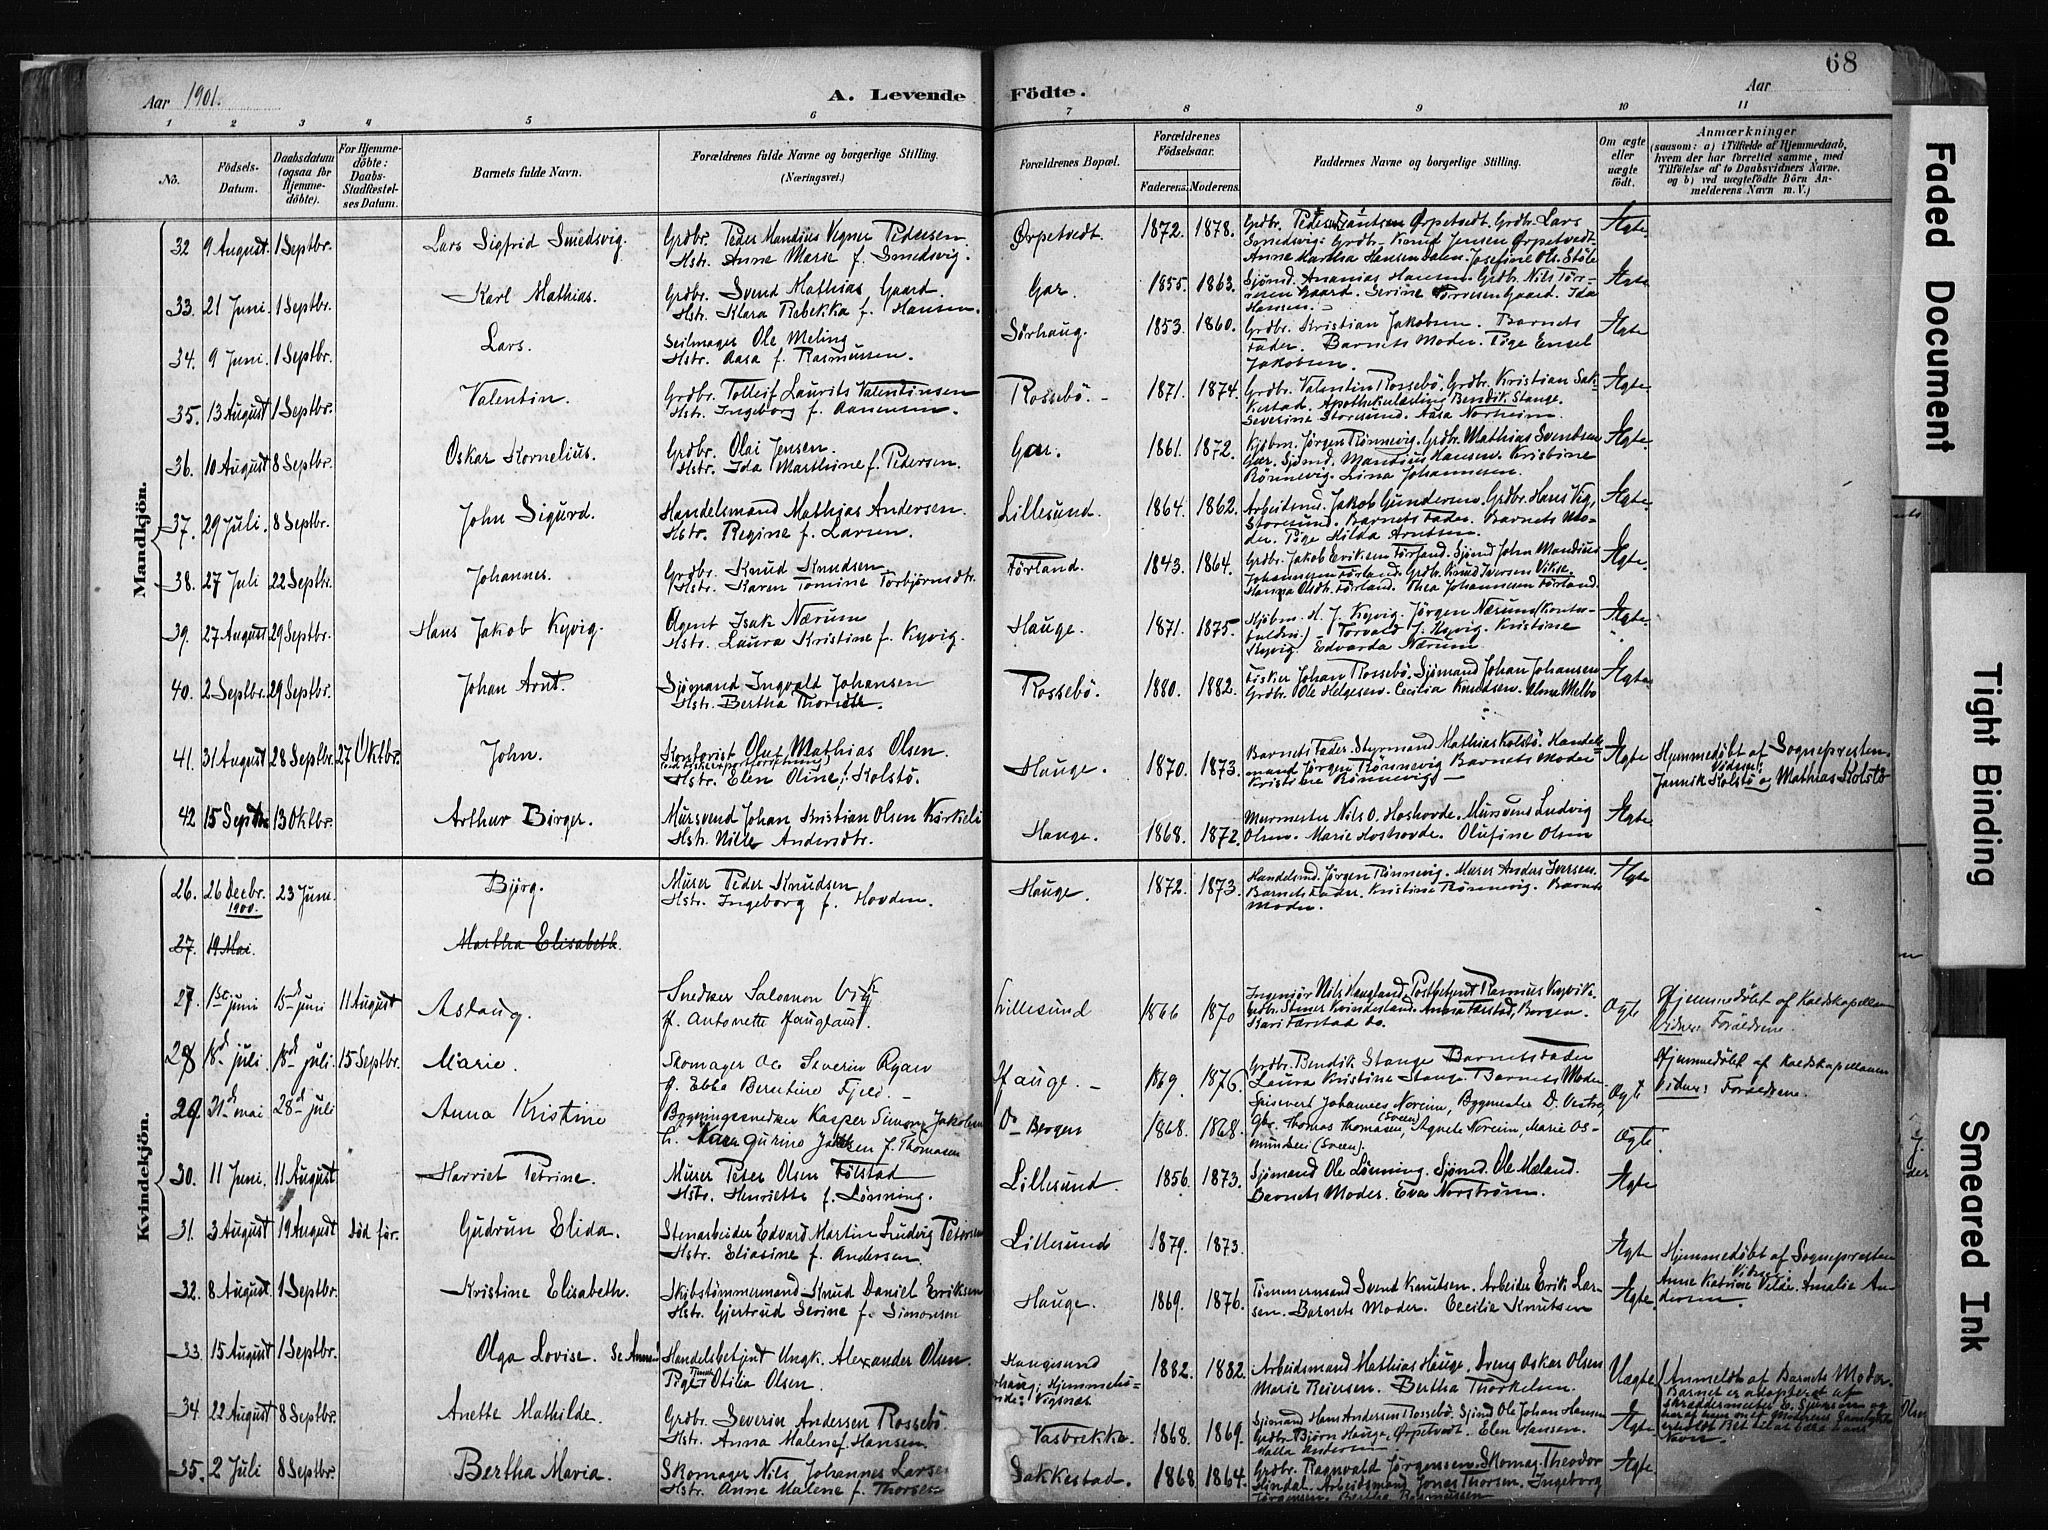 68
Aar 1901.
A. Levende Födte.
Aar
1 2 3 4 5 6 7 8 9 10 11
No.
Födsels-Datum.
Daabsdatum (ogsaa for Hjemmedöbte).
For Hjemmedöbte: Daabs-Stadfæstelses Datum.
Barnets fulde Navn.
Forældrenes fulde Navne og borgerlige Stilling. (Næringsvei.)
Forældrenes Bopæl.
Forældrenes Födselsaar.
Faderens. Moderens.
Faddernes Navne og borgerlige Stilling.
Om ægte eller uægte födt.
Anmærkninger
(saasom: a) i Tilfælde af Hjemmedaab, hvem der har forrettet samme, med Tilföielse af to Daabsvidners Navne, og b) ved uægtefödte Börn Anmelderens Navn m. V.)
Mandkjön.
32 9 August. 1 Septbr. Lars Sigfrid Smedsvig. Grdbr. Peder Mandius Vegner Pedersen. Ørpetvedt. 1872. 1878. Grdbr. Peder Knutsen Ørpetvedt. Grdbr. Lars Ægte.
Hstr. Anne Marie f. Smedsvig. Smedsvig. Grdbr. Knud Jensen Ørpetvedt.
Anne Martha Hansen Dalen. Josefine Ols. Støle
33. 21 Juni. 1 Septbr. Karl Mathias. Grdbr. Svend Mathias Gaard. Gar. 1855. 1863. Sjømd. Ananias Hansen. Grdbr. Nils Tor- Ægte
Hstr. Klara Rebekka f. Hansen. resen Gaard. Serine Torresen Gaard. Ida
Hansen.
34. 9 Juni. 1 Septbr. Lars. Seilmager Ole Meling Sørhaug. 1853. 1860. Grdbr. Kristian Jakobsen. Barnets Ægte
Hstr. Aasa f. Rasmussen. Fader. Barnets Moder. Pige Engel
Jakobsen.
35. 13 August 1 Septbr. Valentin. Grdbr. Tolleif Laurits Valentinsen Rossebö. 1871. 1874. Grdbr. Valentin Rossebö. Grdbr. Kristian Sak- Ægte
Hstr. Ingeborg f. Aanensen. kestad. Apothekerlærling Bendik Stange.
Severine Storesund. Aasa Norheim.
36. 10 August 8 Septbr. Oskar Kornelius. Grdbr. Olai Jensen. Gar. 1861. 1872. Kjøbm. Jørgen Rønnevig. Grdbr. Mathias Svendsen Ægte
Hstr. Ida Marthine f. Pedersen. Gar. Sjømd. Mandius Hansen. Kristine
Rønnevig. Lina Johannesen.
37. 29 Juli. 8 Septbr. John Sigurd. Handelsmand Mathias Andersen. Lillesund. 1864. 1862. Arbeitsmd. Jakob Gundersen. Grdbr. Hans Vig, Ægte
Hstr. Regine f. Larsen. Storesund. Barnets Fader. Barnets Mo-
der. Pige Hilda Arntsen.
38. 27 Juli 22 Septbr. Johannes. Grdbr. Knud Knudsen Førland. 1843. 1864. Grdbr. Jakob Eriksen Førland. Sjømd John Mandius Ægte.
Hstr. Karen Tomine Torbjørnsdtr. Johannesen Førland. Grdbr. Knud Iversen Vikse.
Hanna Olsdtr. Førland. Thea Johannesen Førland.
39. 27 August 29 Septbr. Hans Jakob Kyvig. Agent Isak Nærum Hauge. 1871. 1875. Kjøbm. H. J. Kyvig. Jørgen Nærum (Kontor- Ægte
Hstr. Laura Kristine f. Kyvig. Torvald J. Kyvig. Kristine
Kyvig. Edvarda Nærum.
40. 2 Septbr. 29 Septbr. Johan Arnt. Sjømand Ingvald Johansen Rossebö. 1880. 1882. Fisker Johan Rossebö. Sjømand Johan Johansen Ægte
Hstr. Bertha Thorsen. Grdbr. Ole Helgesen. Cecilia Knudsen.
41. 31 August 28 Septbr. 27 Oktbr. John. Kontorist Oluf Mathias Olsen. Hauge. 1870. 1873. Barnets Fader. Styrmand Mathias Kolstö. Handels- Ægte Hjemmedøbt af Sognepresten.
Hstr. Elen Oline f. Kolstö. mand Jørgen Rønnevig Barnets Moder Vidner:
Kristine Rønnevig. Jannik Kolstö og Mathias Kolstö
42 15 Septbr 13 Oktbr. Arthur Birger. Mursvend Johan Kristian Olsen Kirkeli Hauge. 1868. 1872. Murmester Nils O. Hoshovde. Mursvend Ludvig Ægte
Hstr. Nille Andersdtr. Olsen. Marie Hoshovde. Olufine Olsen
Kvindekjön.
26. 26 Decbr. 1900. 23 Juni. Bjørg. Murer Peder Knudsen Hauge. 1872. 1873. Handelsmd. Jørgen Rønnevig. Murer Anders Iversen. Ægte
Hstr. Ingeborg f. Hovden. Barnets Fader. Kristine Rønnevig. Barnets
Moder.
27. 19 Mai. Martha Elisabeth.
27. 1ste juni 15de juni 11 August Aslaug. Snedker Salomon Vik Lillesund 1866 1870 Ingeniør Nils Haugland, Postbetjent Rasmus Kyvik. Ogte Hjemmedøbt af Kaldskapellanen
f. Antonette Haugland. Gdbr. Stener Kvinnesland. Anna Farstad, Bergen. Vidner Forældrene.
Kari Farstad do.
28 18d juli. 18de juli. 15 Septbr. Marie. Skomager Ole Severin Ryan Hauge. 1869. 1876. Grdbr. Bendik Stange Barnets Fader Ogte Hjemmedøbt af Kaldskapellanen
f. Ebba Berntine Fjeld. Laura Kristine Stange. Barnets Moder Vidner: Forældrene.
29. 31de mai 28de juli Anna Kristine Bygningssnedker Kasper Simon Jakobsen Do Bergen 1868. 1868. Spisevert Johannes Noreim, Bygmester D. Vestre, Ogte.
Gurine Jakobsen f. Thomasen Gbr. Thomas Thomasen (Sveen), Agnete Noreim, Marie Os-
mundsen (Sveen).
30. 11 Juni. 11 August Harriet Petrine. Murer Peter Olsen Følstad Lillesund. 1856. 1873. Sjømand Ole Lønning. Sjømd. Ole Mæland. Ægte
Hstr. Henriette f. Lønning. Barnets Moder. Eva Norstrøm.
31. 3 August 19 August død før. Gudrun Elida. Stenarbeider Edvard Martin Ludvig Petersen Lillesund 1879. 1873. Ægte Hjemmedøbt af Sognepresten
Hstr. Eliasine f. Andersen. Vidner:
32. 8 August. 1 Septbr. Kristine Elisabeth. Skibstømmermand Knud Daniel Eriksen Hauge. 1869. 1876. Tømmermand Svend Knutsen. Arbeider Erik Lar- Ægte. Anne Katrine Velde. Amalie An-
Hstr. Gjertrud Serine f. Simonsen sen. Barnets Moder. Cecilie Knutsen dersen.
33. 15 August 1 Septbr. Olga Lovise. Se Anm. Handelsbetjent Ungk. Alexander Olsen. Haugesund 1882. 1882. Arbeidsmand Mathias Hauge. Dreng Oskar Olsen Uægte Anmeldt af Barnets Moder.
Pige Otilia Olsen. Hjemmehø- Marie Reiersen. Bertha Thorkelsen. Barnet er adopteret af
Vigsnæs
34. 22 August 8 Septbr. Anette Mathilde. Grdbr. Severin Andersen Rossebö. Vasbrekke. 1868. 1869. Sjømand Hans Andersen Rossebö. Sjømd Ole Johan Hansen Ægte
Hstr. Anna Malene f. Hansen. Grdbr. Bjørn Hauge, Ørpetvedt. Elen Hansen.
Malla Andersen. Navn.
35. 2 Juli 8 Septbr. Bertha Maria. Skomager Nils Johannes Larsen Sakkestad. 1868 1864. Grdbr. Ragnvald Jørgensen. Skomag. Theodor Ægte
Hstr. Anne Malene f. Thorsen Hindal. Arbeidsmand Jonas Thorsen. Ingeborg
Jørgensen. Bertha Rasmussen
Faded Document
Tight Binding
Smeared Ink